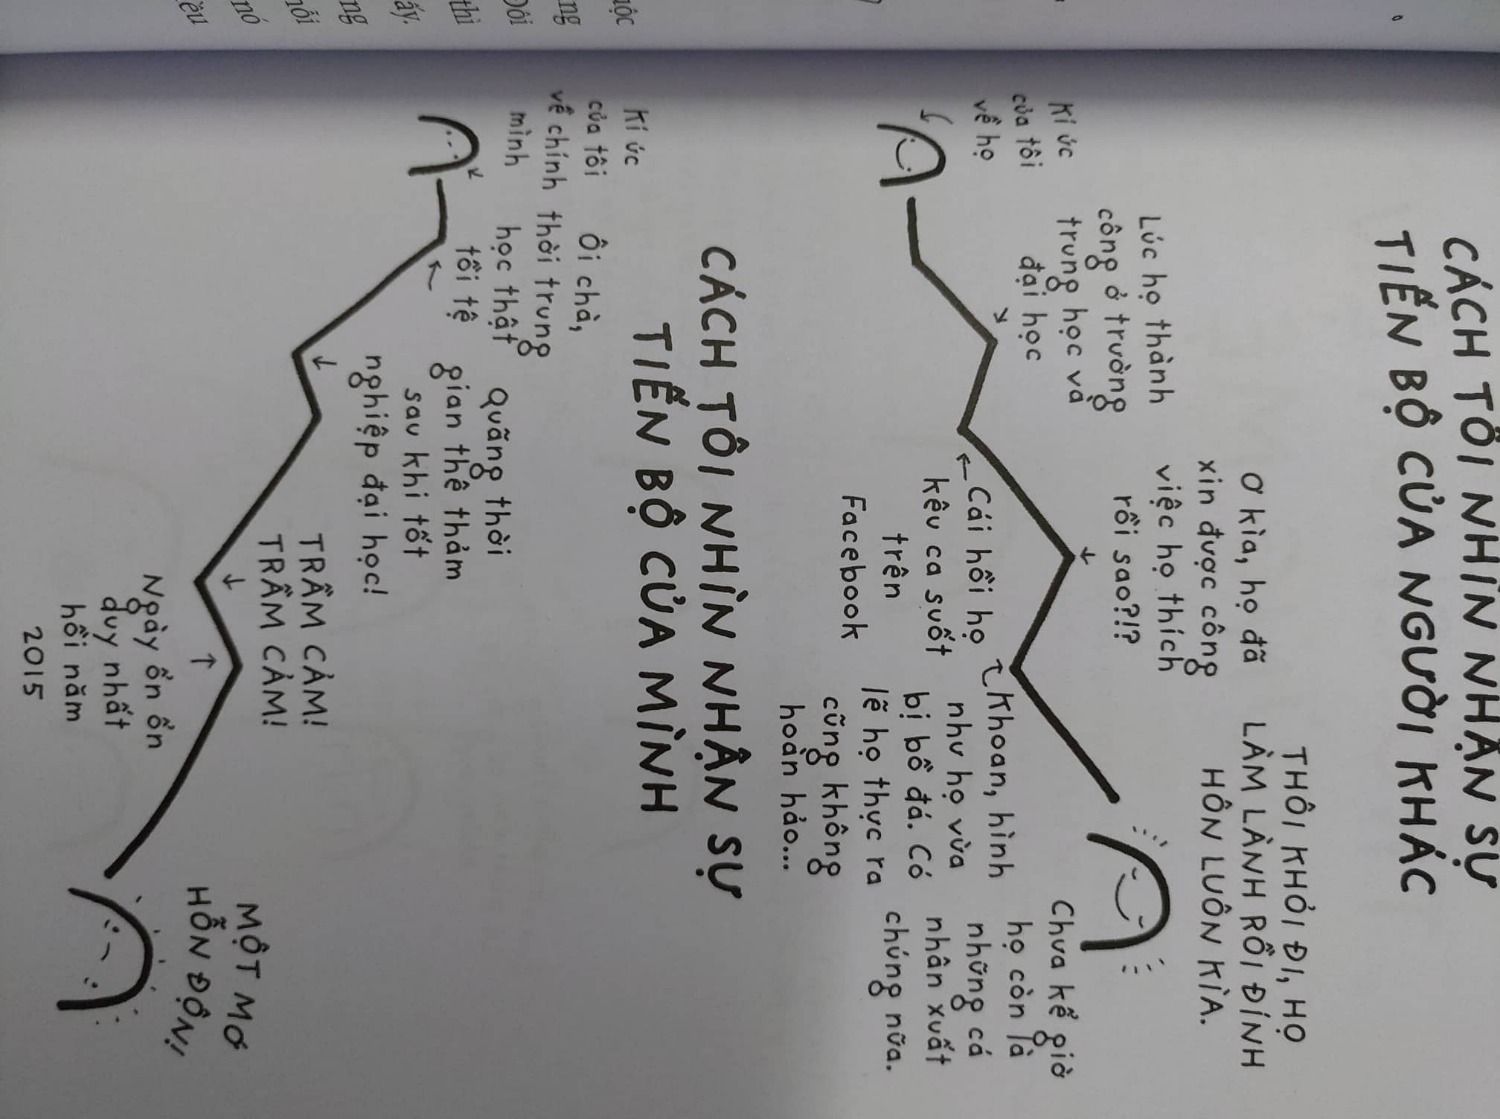 CÁCH TÔI NHÌN NHẬN SỰ
TIẾN BỘ CỦA NGƯỜI KHÁC
THÔI KHỎI ĐI, HỌ
LÀM LÀNH RỒI ĐÍNH
HÔN LUÔN KÌA.
Ơ kìa, họ đã
xin được công
việc họ thích
rồi sao?!?
Lúc họ thành
công ở trường
trung học và
đại học
Kí ức
của tôi
về họ
Cái hồi họ
kêu ca suốt
trên
Facebook
Khoan, hình
như họ vừa
bị bồ đá. Có
lẽ họ thực ra
cũng không
hoàn hảo...
Chưa kể giờ
họ còn là
những cá
nhân xuất
chúng nữa.
CÁCH TÔI NHÌN NHẬN SỰ
TIẾN BỘ CỦA MÌNH
Kí ức
của tôi
về chính
mình
Ôi chà,
thời trung
học thật
tồi tệ
Quãng thời
gian thê thảm
sau khi tốt
nghiệp đại học!
TRẦM CẢM!
TRẦM CẢM!
Ngày ổn ổn
duy nhất
hồi năm
2015
MỘT MƠ
HỖN ĐỘN!!
uộc
ng
Đôi
thì
ấy.
ng
nỗi
nó
ều